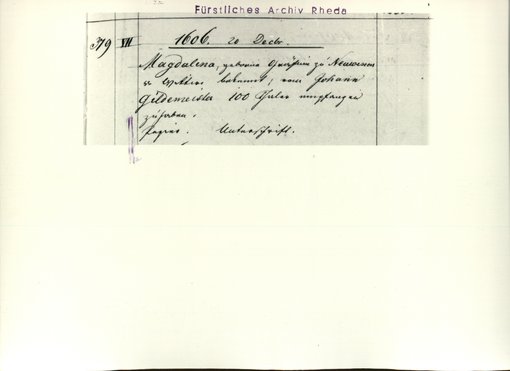 Fürstliches Archiv Rheda
379 VII 1606. 20 Decbr.
Magdalena, geborne Gräfin zu Neuwenar
u. bekennt, von Johann
Gildemeister 100 Thaler empfangen
zu haben.
Papier. Unterschrift.